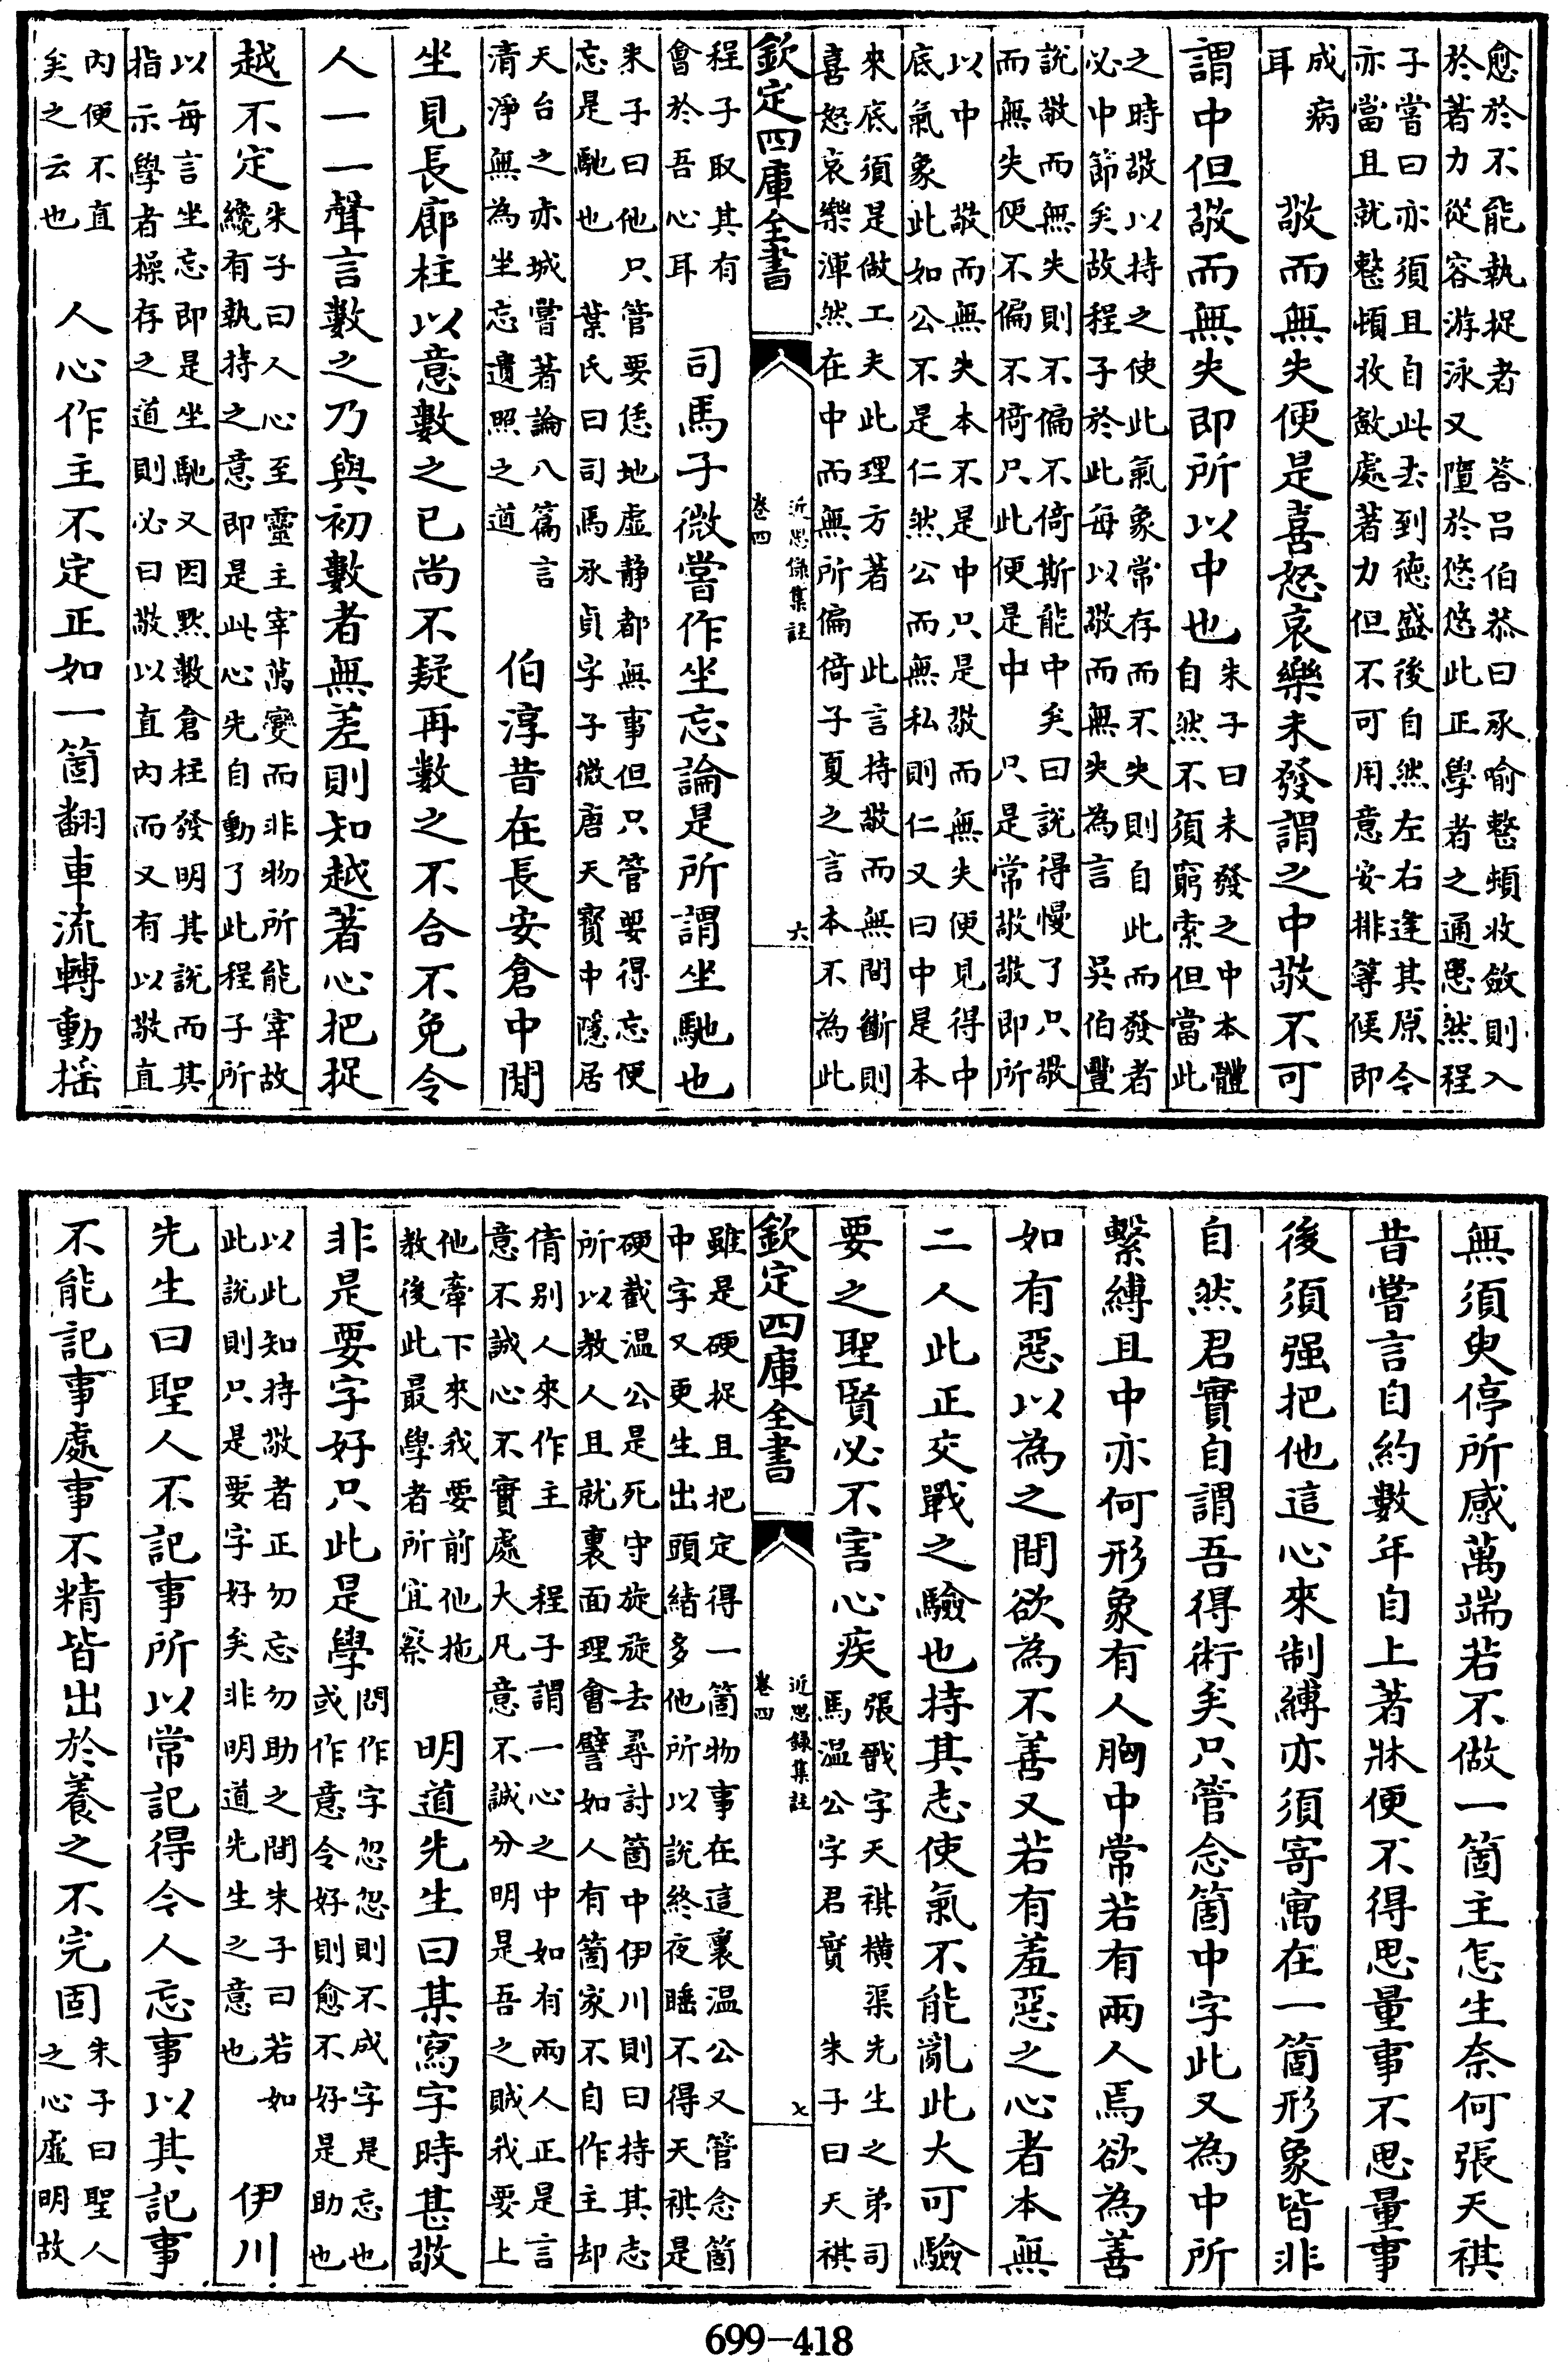 愈於不能執捉者　答呂伯恭曰承喻整頓收斂則入
於著力從容游泳又墮於悠悠此正學者之通患然程
子嘗曰亦須且自此去到徳盛後自然左右逢其原今
亦當且就整頓收斂處著力但不可用意安排等候即
成病
耳
敬而無失便是喜怒哀樂未發謂之中敬不可
謂中但敬而無失即所以中也
朱子曰未發之中本體
自然不須窮索但當此
之時敬以持之使此氣象常存而不失則自此而發者
必中節矣故程子於此每以敬而無失為言　吳伯豐
說敬而無失則不偏不倚斯能中矣曰說得慢了只敬
而無失便不偏不倚只此便是中　只是常敬敬即所
以中　敬而無失本不是中只是敬而無失便見得中
底氣象此如公不是仁然公而無私則仁又曰中是本
來底須是做工夫此理方著　此言持敬而無間斷則
喜怒哀樂渾然在中而無所偏倚子夏之言本不為此
欽定四庫全書
近思録集註
卷四
六
程子取其有
會於吾心耳
司馬子微嘗作坐忘論是所謂坐馳也
朱子曰他只管要恁地虛静都無事但只管要得忘便
忘是馳也　葉氏曰司馬承貞字子微唐天寶中隱居
天台之赤城嘗著論八篇言
清淨無為坐忘遺照之道
伯淳昔在長安倉中閒
坐見長廊柱以意數之已尚不疑再數之不合不免令
人一一聲言數之乃與初數者無差則知越著心把捉
越不定
朱子曰人心至靈主宰萬變而非物所能宰故
纔有執持之意即是此心先自動了此程子所
以每言坐忘即是坐馳又因黙數倉柱發明其說而其
指示學者操存之道則必曰敬以直內而又有以敬直
內便不直
矣之云也
人心作主不定正如一箇翻車流轉動揺
無須臾停所感萬端若不做一箇主怎生奈何張天祺
昔嘗言自約數年自上著牀便不得思量事不思量事
後須强把他這心來制縛亦須寄寓在一箇形象皆非
自然君實自謂吾得術矣只管念箇中字此又為中所
繫縛且中亦何形象有人胸中常若有兩人焉欲為善
如有惡以為之間欲為不善又若有羞惡之心者本無
二人此正交戰之驗也持其志使氣不能亂此大可驗
要之聖賢必不害心疾
張戩字天祺横渠先生之弟司
馬温公字君實　朱子曰天祺
欽定四庫全書
近思錄集註
卷四
七
雖是硬捉且把定得一箇物事在這裏温公又管念箇
中字又更生出頭緒多他所以說終夜睡不得天祺是
硬截温公是死守旋旋去尋討箇中伊川則曰持其志
所以教人且就裏面理會譬如人有箇家不自作主却
倩別人來作主　程子謂一心之中如有兩人正是言
意不誠心不實處大凡意不誠分明是吾之賊我要上
他牽下來我要前他拖
教後此最學者所宜察
明道先生曰某寫字時甚敬
非是要字好只此是學
問作字忽忽則不成字是忘也
或作意令好則愈不好是助也
以此知持敬者正勿忘勿助之間朱子曰若如
此說則只是要字好矣非明道先生之意也
伊川
先生曰聖人不記事所以常記得今人忘事以其記事
不能記事處事不精皆出於養之不完固
朱子曰聖人
之心虛明故
699-418